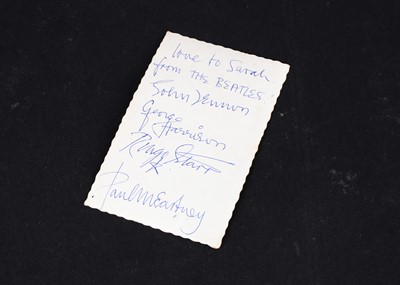 love to Sarah
from THE BEATLES
John Lennon
George Harrison
Ringo Starr
Paul McCartney